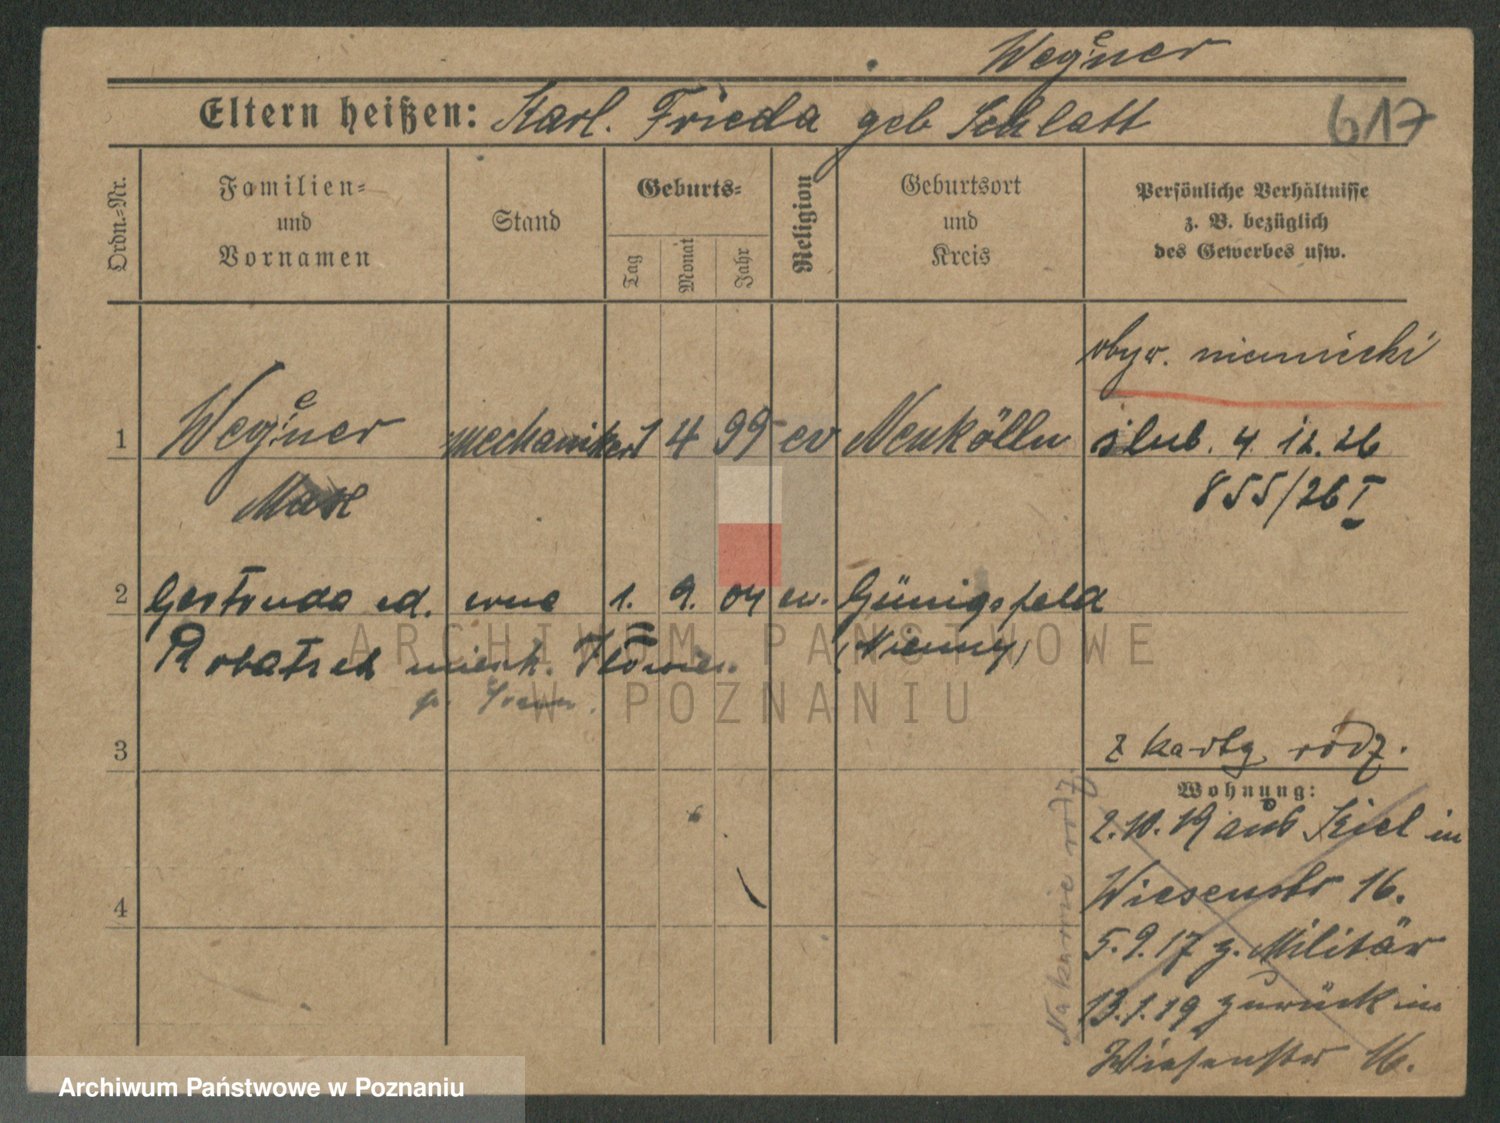 Wegener
Eltern heißen: Karl. Frieda geb Schlatt
617
Ordn.-Nr.
Familien-
und
Vornamen
Stand
Geburts-
Tag
Monat
Jahr
Religion
Geburtsort
und
Kreis
Persönliche Verhältnisse
z. B. bezüglich
des Gewerbes usw.
obyw. niemiecki
1 Wegener mechaniker 1 4 99 ev Neukölln ślub. 4. 12. 26
Max
855/26 I
2 Gertruda ed. erna 1. 9. 04 ew. Günigsfeld
Robatsek mieszk.
(Niemcy)
3
z karty rodz.
Wohnung:
2.10.19 aus Kiel in
Wiesenstr 16.
4
5.9.17 z. Militär
13.1.19 zurück in
Wiesenstr 16.
Na karcie rodz.
ARCHIWUM PAŃSTWOWE
W POZNANIU
Archiwum Państwowe w Poznaniu